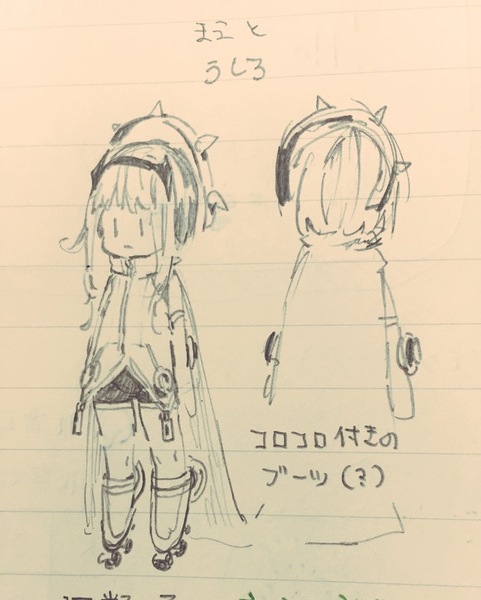 まえと
うしろ
コロコロ付きの
ブーツ(?)